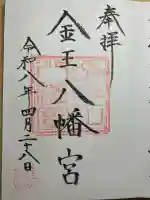 奉拝
金王八幡宮
令和八年四月二十八日